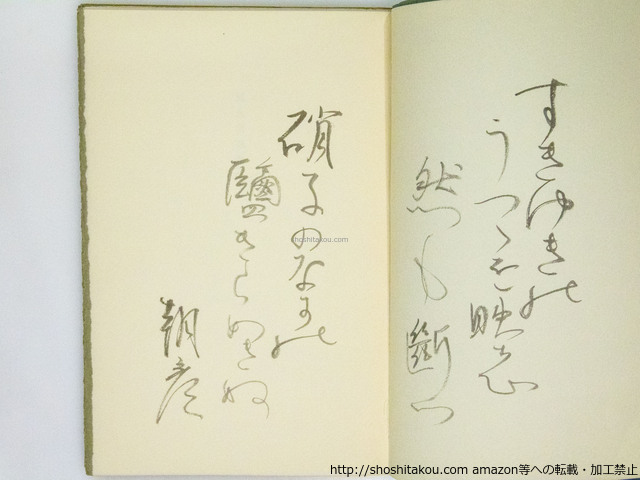 すきゆきの
うつゝを映し
然も斷つ
硝子のなかの
鹽きらめきぬ
朝彦
shoshitakou.com
http://shoshitakou.com amazon等への転載・加工禁止